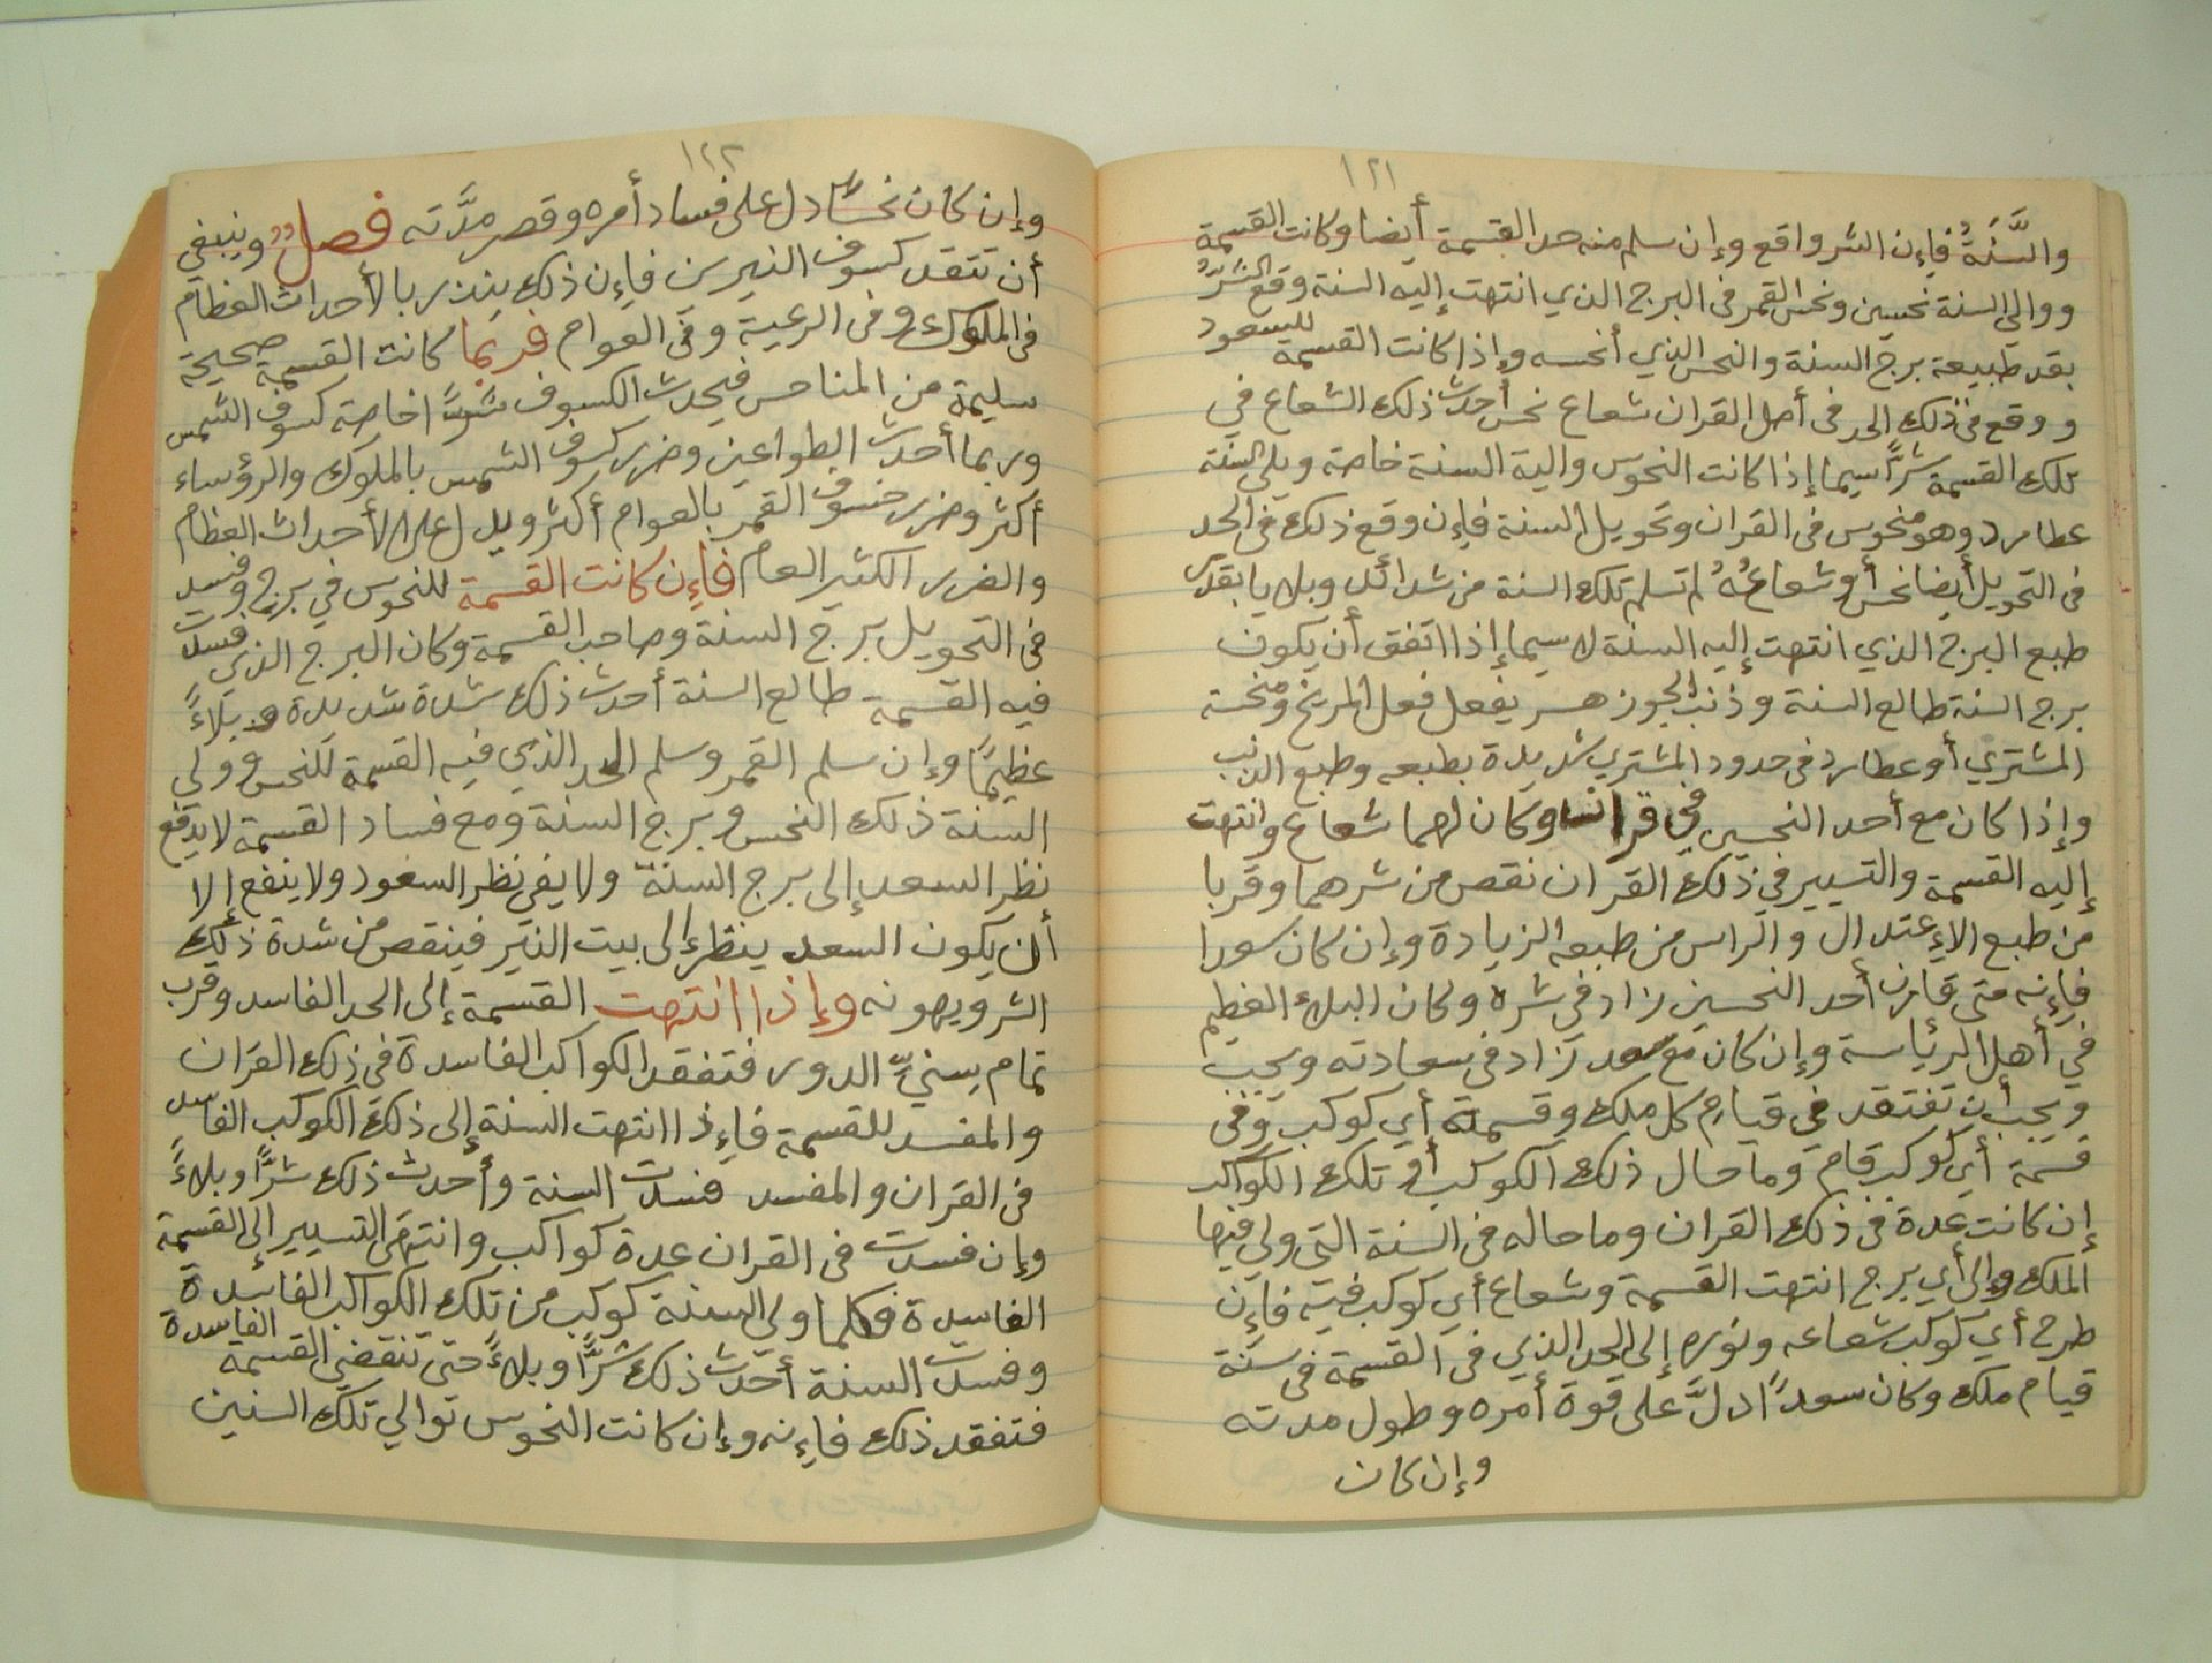 ١٢١
والسَّنَةُ فإن الشر واقع وإن سلم منه حد القسمة أيضا وكانت القسمة
ووالى السنة نحسين ونحس القمر فى البرج الذي انتهت إليه السنة وقع الشرُّ
بقدر طبيعة برج السنة والنحس الذي أنحسه وإذا كانت القسمة للسعود
ووقع فى ذلك الحد فى أصل القران شعاع نحس أحدث ذلك الشعاع في
تلك القسمة شرًّا سيما إذا كانت النحوس والية السنة خاصة ويلى السنة
عطارد وهو منحوس فى القران وتحويل السنة فإن وقع ذلك فى الحد
فى التحويل أيضا نحس أو شعاعُهُ لم تسلم تلك السنة من شدائد وبلايا بقدر
طبع البرج الذي انتهت إليه السنة لا سيما إذا اتفق أن يكون
برج السنة طالع السنة وذنب الجوزهر يفعل فعل المريخ ومنحسة
المشتري أو عطارد فى حدود المشتري شديدة بطبعه وطبع الذنب
وإذا كان مع أحد النحسين في قرانتا وكان لهما شعاع وانتهت
إليه القسمة والتسيير في ذلك القران نقص من شرهما وقربا
من طبع الإعتدال والراس من طبعه الزيادة وإن كان سعدا
فإنه متى قارن أحد النحسين زاد في شره وكان البلاء العظيم
في أهل الرئاسة وإن كان مع سعد زاد فى سعادته ويجب
ويجب أن تفتقد في قيام كل ملك وقسمة أي كوكب وفى
قسمة أي كوكب قام وما حال ذلك الكوكب أو تلك الكواكب
إن كانت عدة فى ذلك القران وما حاله فى السنة التى ولى فيها
الملك وإلى أي برج انتهت القسمة وشعاع أي كوكب فيه فإن
طرح أي كوكب شعاعه ونوره إلى الحد الذي فى القسمة فى سنة
قيام ملك وكان سعدًا دلَّ على قوة أمره وطول مدته
وإن كان
١٢٢
وإن كان نحسًا دل على فساد أمره وقصر مدَّته فصل وينبغي
أن تتقد كسوف النيرين فإن ذلك ينذر بالأحداث العظام
فى الملوك وفى الرعية وفى العوام فربما كانت القسمة صحيحة
سليمة من المناحس فيحدث الكسوف شرًّا خاصة كسوف الشمس
وربما أحدث الطواعين وضرر كسوف الشمس بالملوك والرؤساء
أكثر وضرر خسوف القمر بالعوام أكثر ويدل على الأحداث العظام
والضرر الكثير العام فإن كانت القسمة للنحوس في برج وفسد
فى التحويل برج السنة وصاحب القسمة وكان البرج الذي فسدت
فيه القسمة طالع السنة أحدث ذلك شدة شديدة وبلاءً
عظيمًا وإن سلم القمر وسلم الحد الذي فيه القسمة للنحس وولى
السنة ذلك النحس وبرج السنة ومع فساد القسمة لا يدفع
نظر السعد إلى برج السنة ولا يفى نظر السعود ولا ينفع إلا
أن يكون السعد ينظر إلى بيت النيّر فينقص من شدة ذلك
الشر ويهونه وإذا انتهت القسمة إلى الحد الفاسد وقرب
تمام سِنيِّ الدور فتفقد الكواكب الفاسدة فى ذلك القران
والمفسد للقسمة فإذا انتهت السنة إلى ذلك الكوكب الفاسد
فى القران والمفسد فسدت السنة وأحدث ذلك شرًّا وبلاءً
وإن فسدت فى القران عدة كواكب وانتهى التسيير إلى القسمة
الفاسدة فكلما ولى السنة كوكب من تلك الكواكب الفاسدة
وفسدت السنة أحدث ذلك شرًّا وبلاءً حتى تنقضي القسمة الفاسدة
فتفقد ذلك فإنه وإن كانت النحوس توالي تلك السنين